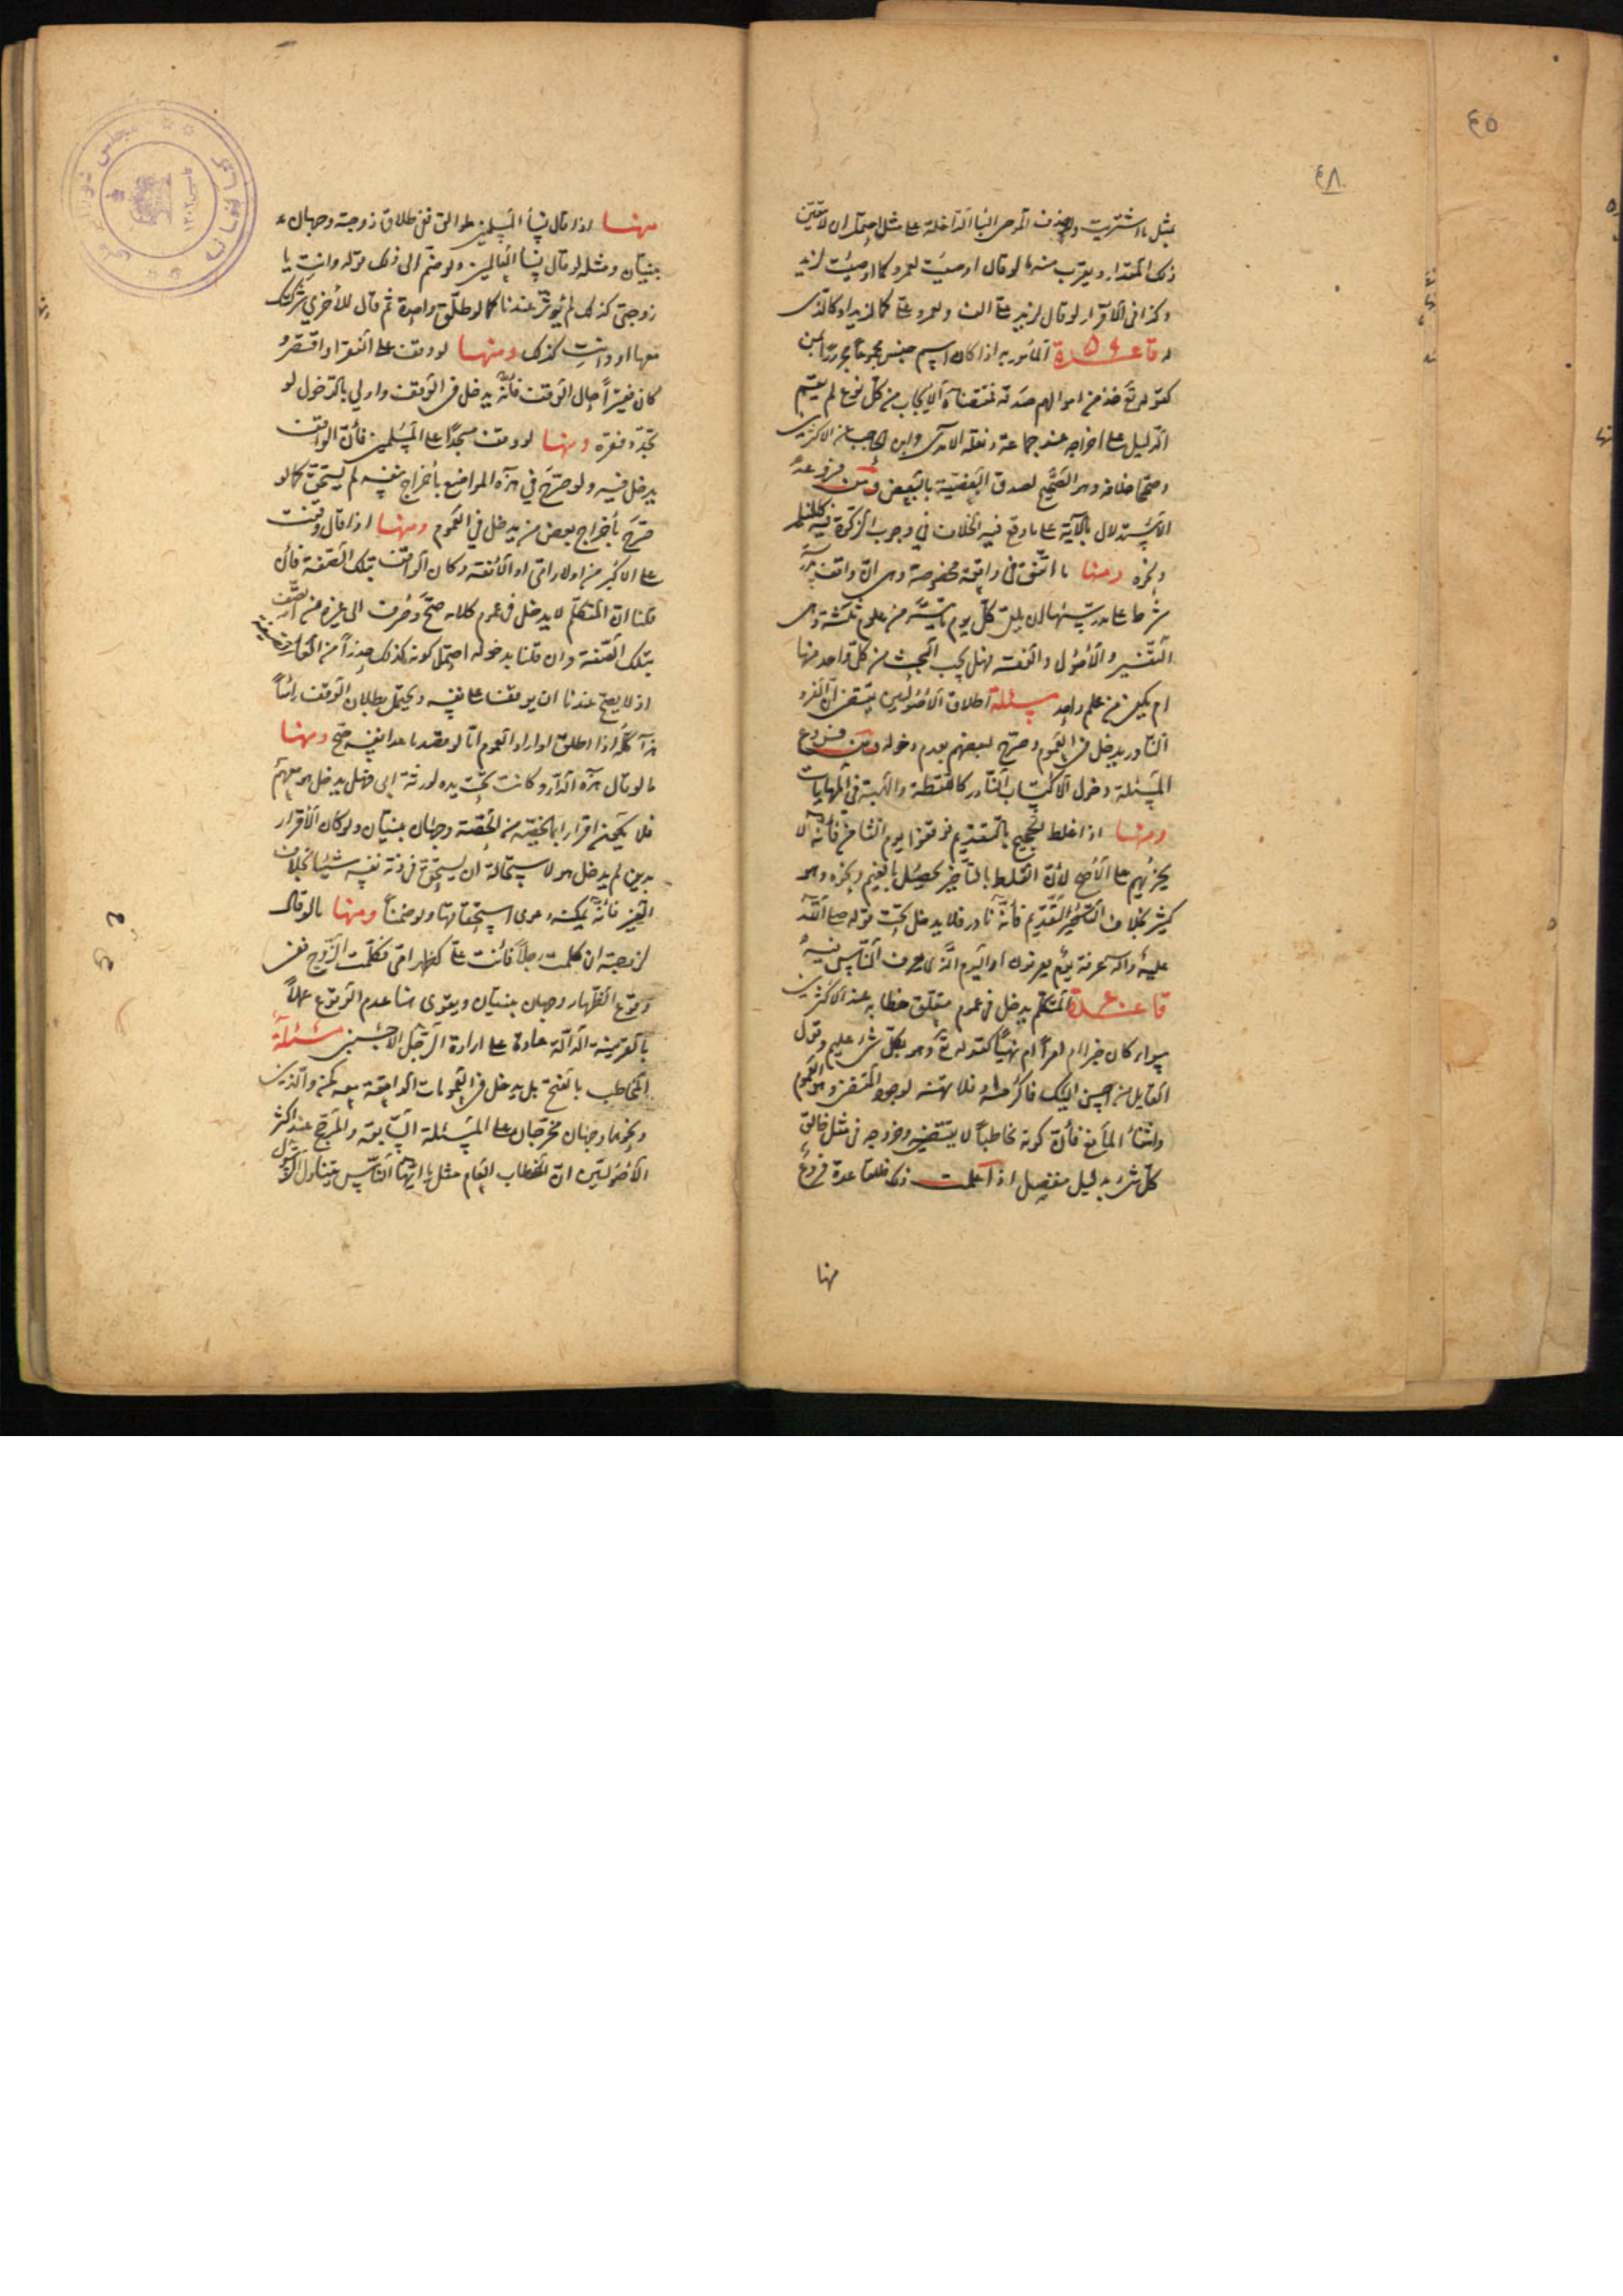 ٤٥
٤٨
بمثل ما اشتريت والمرضى الباء الداخلة على مثل احتمل ان لا يتعين
ذلك المقدار ويقرب منه ما لو قال اوصيت لعمرو كما اوصيت لزيد
وكذا فى الاقرار لو قال لزيد على الف ولعمرو على كما لزيد او كالذى
له قاعدة المأمور به اذا كان اسم جنس مجموعا مجرورا بمن
كقوله تع خذ من اموالهم صدقة فمقتضاه الايجاب من كل نوع لم يقم
الدليل على اخراجه عند جماعة ونقله الامدى وابن الحاجب عن الاكثرين
وصححا خلافه وهو الصحيح لصدق البعضية بالبعض ومن فروعه
الاستدلال بالاية على ما وقع فيه الخلاف في وجوب الزكوة فيه كالخيل
ونحوه ومنها ما اتفق فى واقعة مخصوصة وهى ان واقف مدرسة
شرط على مدرسها ان يلقى كل يوم ما تيسر من علوم ثلثة وهى
التفسير والاصول والفقه فهل يجب البحث من كل واحد منها
ام يكفى من علم واحد مسئلة اطلاق الاصوليين يقتضى ان الفرد
النادر يدخل فى العموم وصرح بعضهم بعدم دخوله ومن فروع
المسئلة دخول الاكتساب النادر كاللقطة والهبة فى المهايات
ومنها اذا غلط الحجيج بالتقديم فوقفوا يوم الثامن فانه لا
يجزئهم على الاصح لان الغلط بالتاخير يحصل بالغيم ونحوه وهو
كثير بخلاف التقديم فانه نادر فلا يدخل تحت قوله صلى الله
عليه واله عرفة يوم يعرفون او اليوم الذى يعرف الناس فيه
قاعدة المتكلم يدخل فى عموم متعلق خطابه عند الاكثرين
سواء كان خبرا ام امرا ام نهيا كقوله تع وهو بكل شىء عليم وقول
القايل من احسن اليك فاكرمه او فلا تهنه لوجود المقتضى وهو العموم
وانتفاء المانع فان كونه مخاطبا لا يقتضى خروجه فى مثل خالق
كل شىء بدليل منفصل اذا علمت ذلك فللقاعدة فروع
منها
منها اذا قال نساء المسلمين طوالق ففى طلاق زوجته وجهان
مبنيان ومثله لو قال نساء العالمين ولو ضم الى ذلك قوله وانت يا
زوجتى كذلك لم يؤثر عندنا كما لو طلق واحدة ثم قال للاخرى شركتك
معها او وانت كذلك ومنها لو وقف على الفقراء وافتقر او
كان فقيرا حال الوقف فانه يدخل فى الوقف واولى بالدخول لو
تجدد فقره ومنها لو وقف مسجدا على المسلمين فان الواقف
يدخل فيه ولو صرح في هذه المواضع باخراج نفسه لم يستحق كما لو
صرح باخراج بعض من يدخل في العموم ومنها اذا قال وقفت
على الاكبر من اولاد ابى او الافقه وكان الواقف بتلك الصفة فان
قلنا ان المتكلم لا يدخل فى عموم كلامه صح وصرف الى غيره ممن اتصف
بتلك الصفة وان قلنا بدخوله احتمل كونه كذلك حذرا من
اذ لا يصح عندنا ان يوقف على نفسه ويحتمل بطلان الوقف راسا
هذا كله اذا اطلق او اراد العموم اما لو قصد ما عدا نفسه صح ومنها
ما لو قال هذه الدار وكانت تحت يده لورثة ابى فهل يدخل هو معهم
فلا يكون اقرارا بما يخصه من الحصة وجهان مبنيان ولو كان الاقرار
بدين لم يدخل هو لاستحالة ان يستحق فى ذمة نفسه شيئا بخلاف
العين فانه يمكنه دعوى استحقاقها ولو ضمنا ومنها ما لو قال
لزوجته ان كلمت رجلا فانت على كظهر امى فكلمت الزوج ففى
وقوع الظهار وجهان مبنيان ويقوى هنا عدم الوقوع عملا
بالقرينة الدالة عادة على ارادة الرجل الاجنبى مسئلة
المخاطب بالفتح بل يدخل فى العمومات الواقعة معه كمن والذين
ونحوهما وجهان مخرجان على المسئلة السابقة والمرجح عند اكثر
الاصوليين ان الخطاب العام مثل يا ايها الناس يتناول الرسول